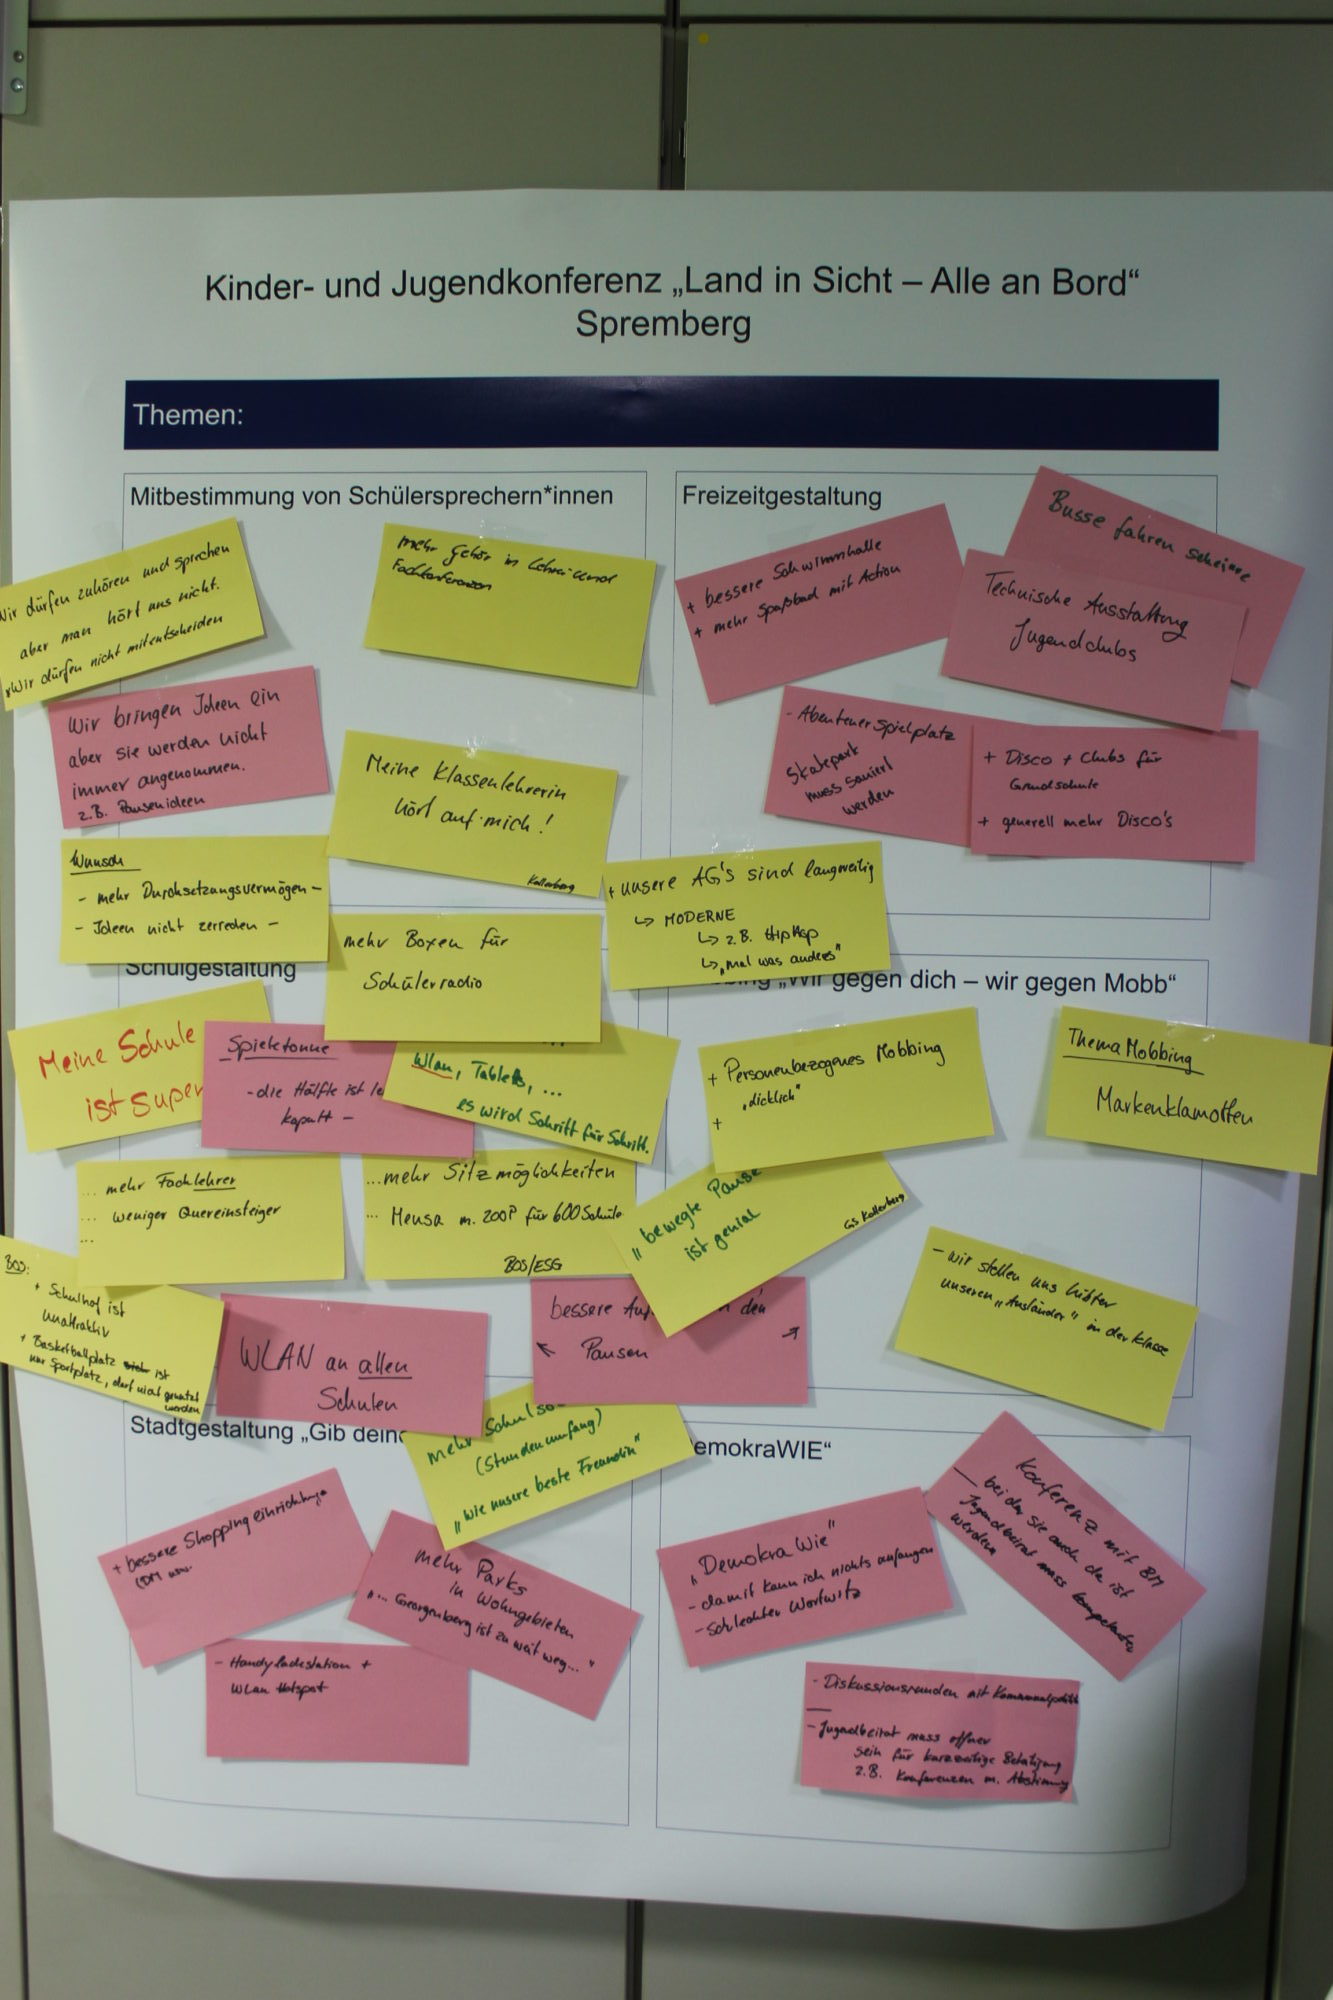 Kinder- und Jugendkonferenz „Land in Sicht – Alle an Bord“
Spremberg
Themen:
Mitbestimmung von Schülersprechern*innen
Wir dürfen zuhören und sprechen
aber man hört uns nicht.
Wir dürfen nicht mitentscheiden
mehr Gehör in Lehrer und
Fachkonferenzen
Wir bringen Ideen ein
aber sie werden nicht
immer angenommen.
z.B. Pausenideen
Meine Klassenlehrerin
hört auf mich!
Kollerberg
Wunsch
- mehr Durchsetzungsvermögen -
- Ideen nicht zerreden -
mehr Boxen für
Schülerradio
Freizeitgestaltung
+ bessere Schwimmhalle
+ mehr Spaßbad mit Action
Busse fahren
Technische Ausstattung
Jugendclubs
- Abenteuerspielplatz
Skatepark
muss saniert
werden
+ Disco + Clubs für
Grundschule
+ generell mehr Disco's
+ unsere AG's sind langweilig
↳ MODERNE
↳ z.B. HipHop
↳ „mal was anders"
Schulgestaltung
Meine Schule
ist super
Spieletonne
- die Hälfte ist
kaputt -
Wlan, Tablets, ...
es wird Schritt für Schritt.
... mehr Fachlehrer
... weniger Quereinsteiger
...
...mehr Sitzmöglichkeiten
... Mensa m. 200P für 600 Schüler
BOS/ESG
„bewegte Pause
ist genial
GS Kollerberg
BOS:
+ Schulhof ist
unattraktiv
+ Basketballplatz ist
nur Sportplatz, darf nicht genutzt
werden
WLAN an allen
Schulen
bessere Auf den
Pausen
mehr Schulso
(Stundenumfang)
„wie unsere beste Freundin"
„Wir gegen dich – wir gegen Mobb“
+ Personenbezogenes Mobbing
„dicklich"
+
Thema Mobbing
Markenklamotten
- wir stellen uns hinter
unseren „Ausländer" in der Klasse
Stadtgestaltung „Gib
+ bessere Shoppingeinrichtung
(DM usw.
mehr Parks
in Wohngebieten
„... Georgenberg ist zu weit weg..."
- Handyladestation +
WLan Hotspot
emokraWIE“
„DemokraWie"
- damit kann ich nichts anfangen
- schlechter Wortwitz
Konferenz mit BM
bei der sie auch da ist
Jugendbeirat muss
werden
- Diskussionsrunden mit Kommunalpolitik
- Jugendbeirat muss offener
sein für kurzzeitige Betätigung
z.B. Konferenzen m. Abstimmung